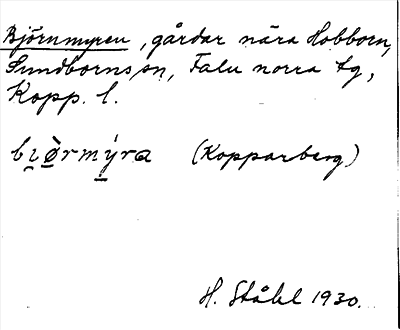 Björnmyren, gårdar nära Hobborn,
Sundborns sn, Falu norra tg,
Kopp. l.
bi̯ö̀rmýra (Kopparberg)
H. Ståhl 1930.